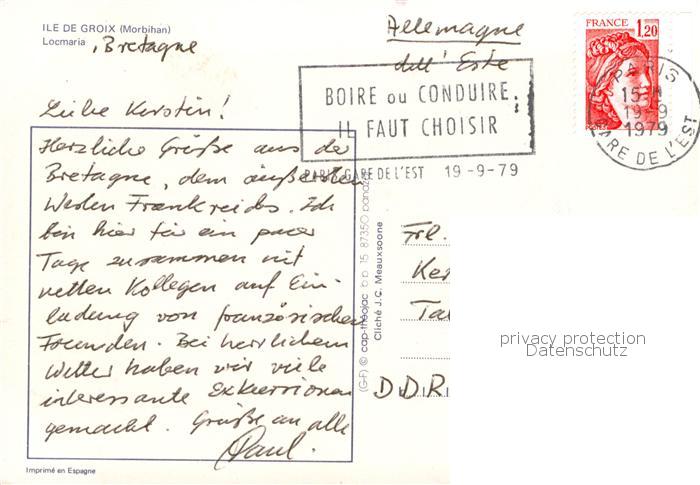 ILE DE GROIX (Morbihan)
Locmaria, Bretagne
Liebe Kerstin!
Herzliche Grüße aus der
Bretagne, dem äußersten
Westen Frankreichs. Ich
bin hier für ein paar
Tage zusammen mit
netten Kollegen auf Ein-
ladung von französischen
Freunden. Bei herrlichem
Wetter haben wir viele
interessante Exkursionen
gemacht. Grüße an alle
Paul.
Imprimé en Espagne
Allemagne
dell' Este
BOIRE ou CONDUIRE.
IL FAUT CHOISIR
PARIS GARE DE L'EST 19-9-79
FRANCE
1,20
PARIS
15H
19-9
1979
GARE DE L'EST
(G-F) © cap-théojac bp 15 87350 panazol
Cliché J.C. Meauxsoone
Frl.
Ker
D.D.R.
privacy protection
Datenschutz